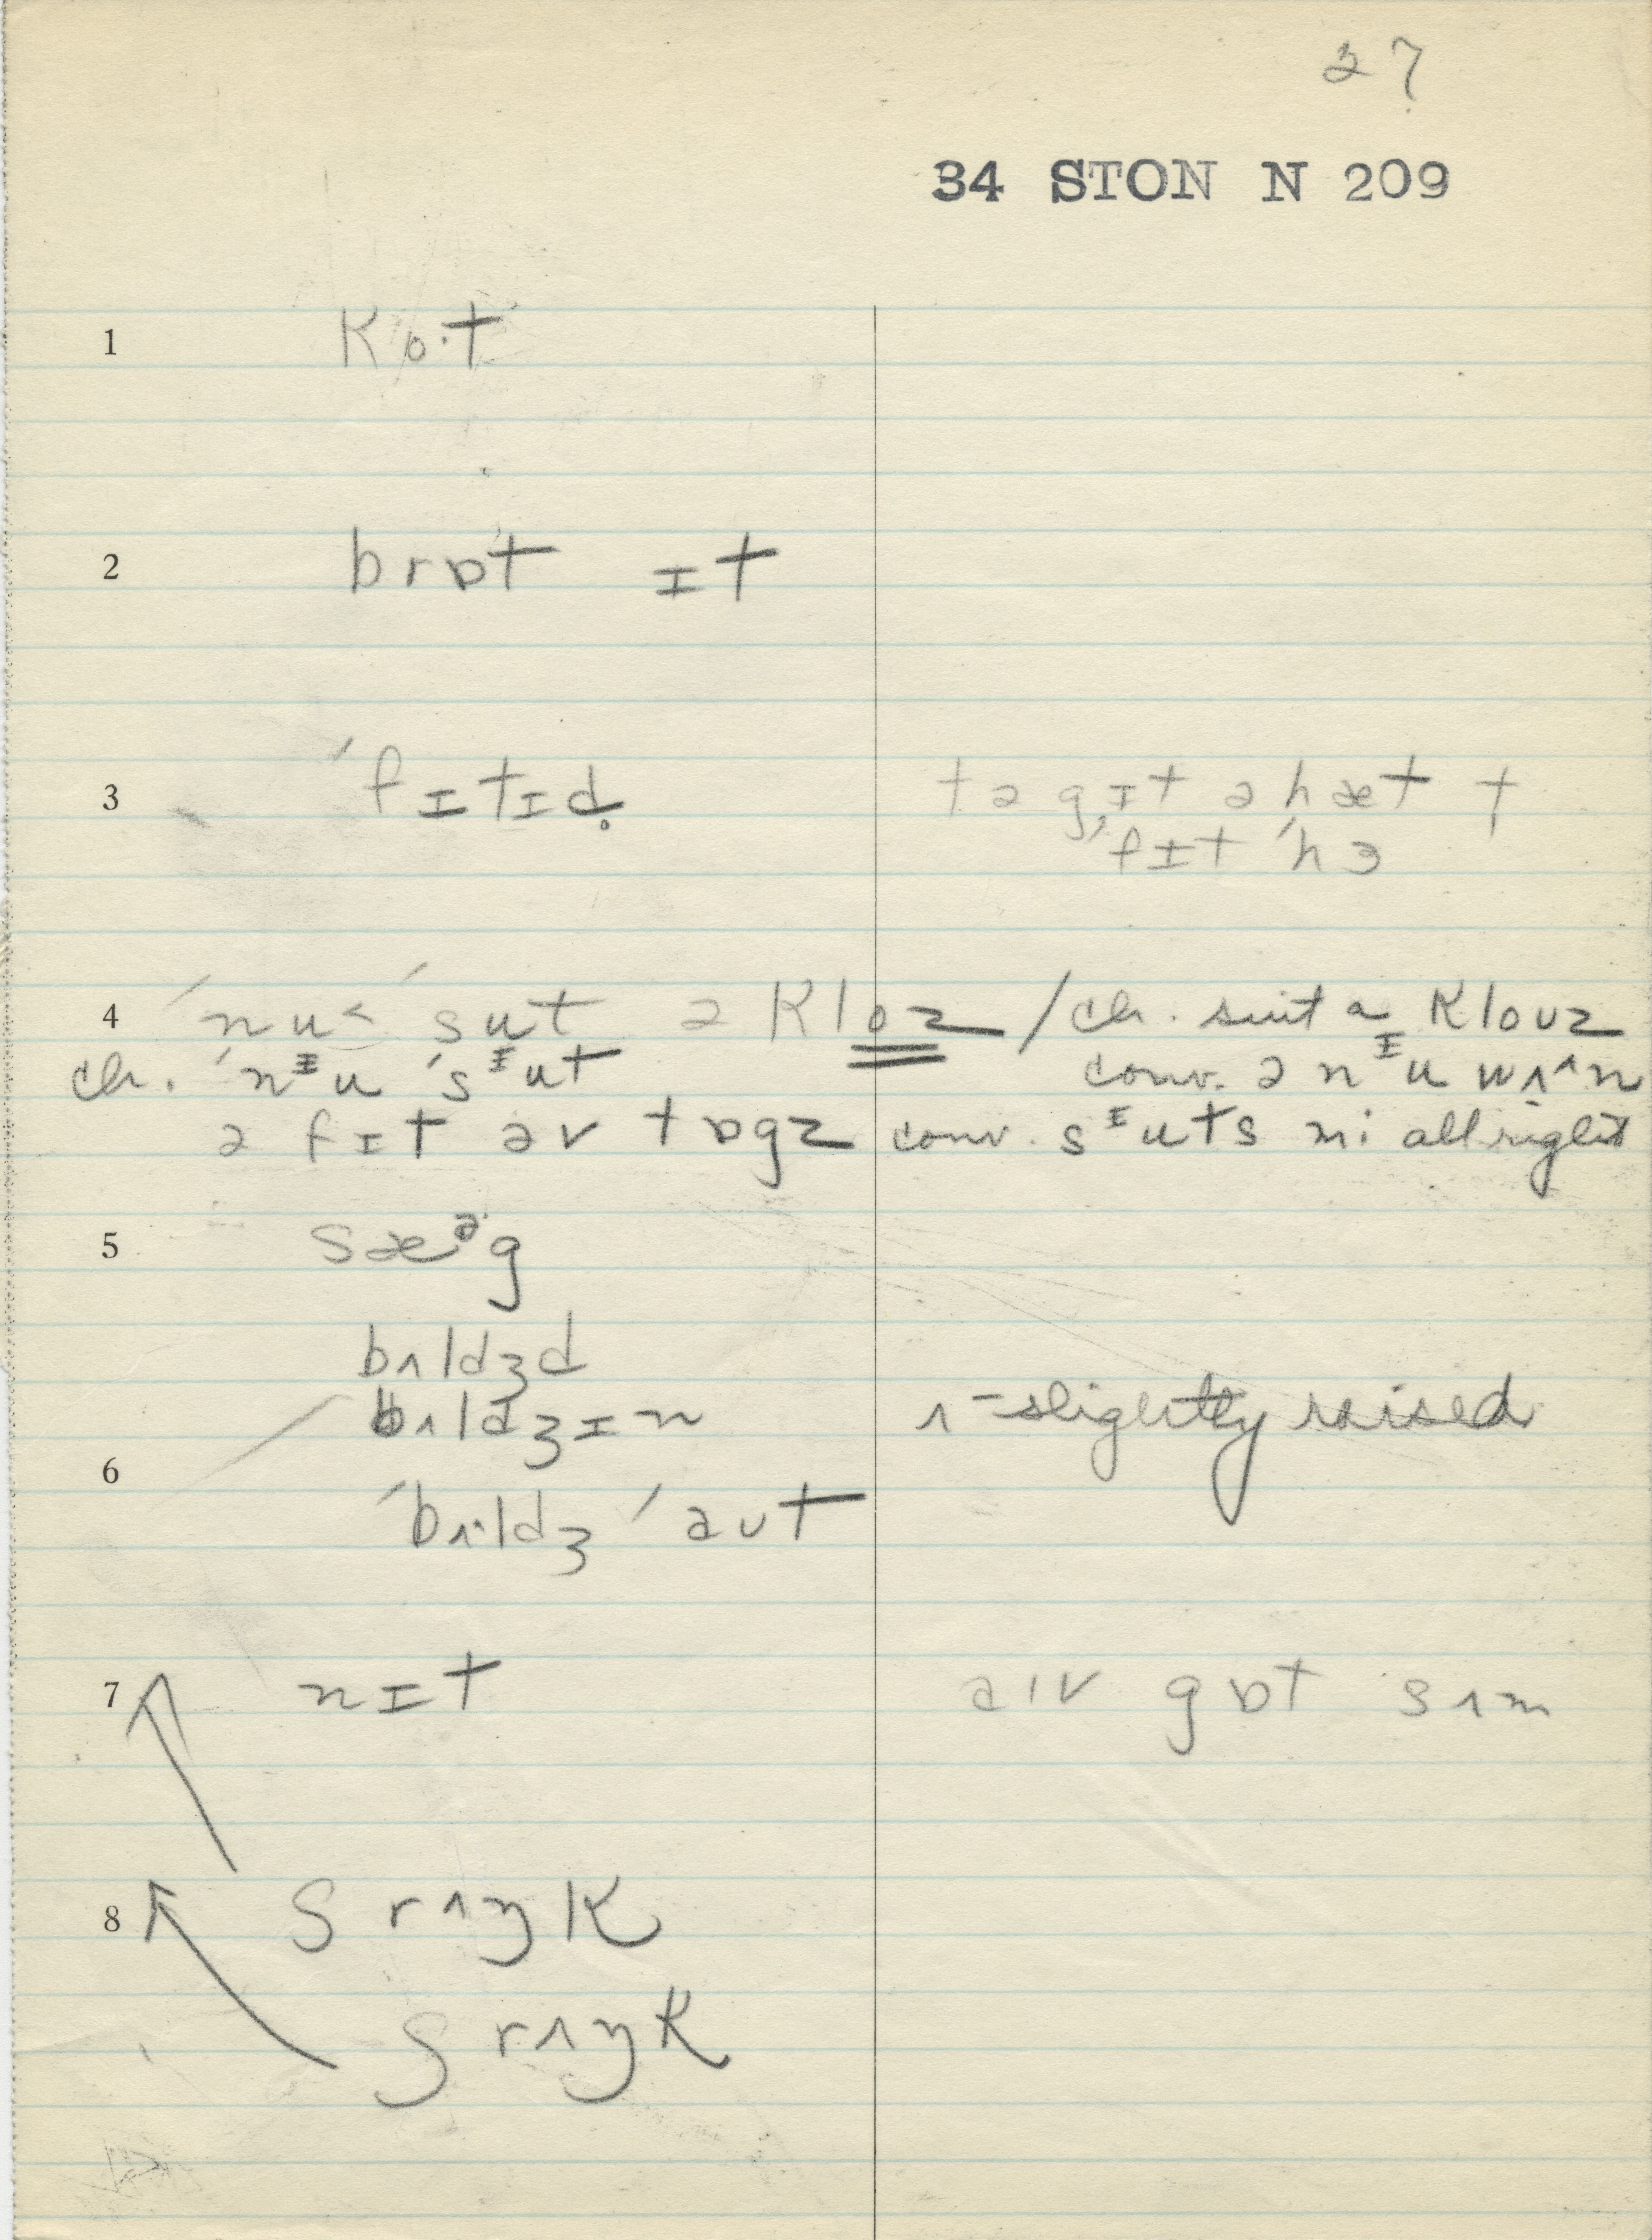 27
34 STON N 209
1 kɒ·t
2 brɒt ɪt
3 ˈfɪtɪd̥ tə gɪt ə hæt t
ˈfɪt ˈhɜ
4 ˈnu˂ ˈsut ə kloz / ch. suit a klouz
ch. ˈnᶦu ˈsᶦut conv. ə nᶦu wʌ^n
ə fɪt əv tɒgz conv. sᶦuts mi all right
5 sæᵊg
bʌldʒd
bʌldʒɪn ʌ - slightly raised
6
ˈbʌ·ldʒ ˈaut
7 nɪt aɪv gɒt sʌm
8 srʌŋk
ʃrʌŋk